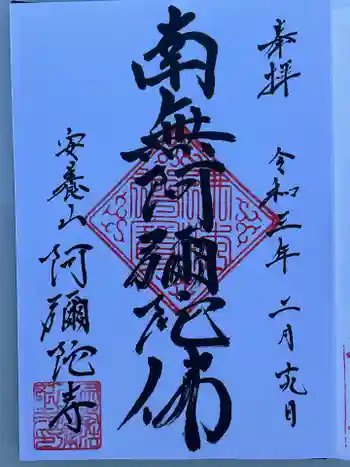 奉拝
令和三年 二月十九日
南無阿彌陀佛
安養山
阿彌陀寺